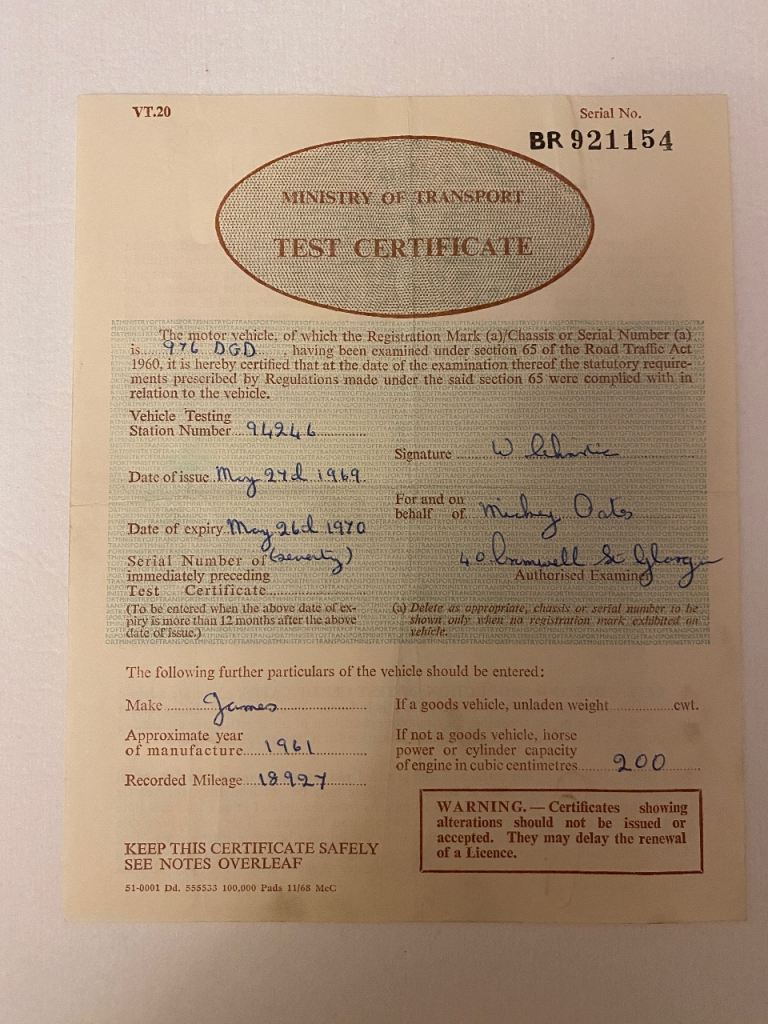 VT.20
Serial No.
BR 921154
MINISTRY OF TRANSPORT
TEST CERTIFICATE
The motor vehicle, of which the Registration Mark (a)/Chassis or Serial Number (a)
is 976 DGD, having been examined under section 65 of the Road Traffic Act
1960, it is hereby certified that at the date of the examination thereof the statutory require-
ments prescribed by Regulations made under the said section 65 were complied with in
relation to the vehicle.
Vehicle Testing
Station Number 94246
Signature W
Date of issue May 27d 1969
For and on
behalf of Mickey Oates
Date of expiry May 26d 1970
(seventy)
Serial Number of
immediately preceding
Test Certificate
40 St Glasgow
Authorised Examiner
(To be entered when the above date of ex-
piry is more than 12 months after the above
date of issue.)
(a) Delete as appropriate, chassis or serial number to be
shown only when no registration mark exhibited on
vehicle.
The following further particulars of the vehicle should be entered:
Make James
If a goods vehicle, unladen weight cwt.
Approximate year
of manufacture 1961
If not a goods vehicle, horse
power or cylinder capacity
of engine in cubic centimetres 200
Recorded Mileage 18927
WARNING.—Certificates showing
alterations should not be issued or
accepted. They may delay the renewal
of a Licence.
KEEP THIS CERTIFICATE SAFELY
SEE NOTES OVERLEAF
51-0001 Dd. 555533 100,000 Pads 11/68 McC